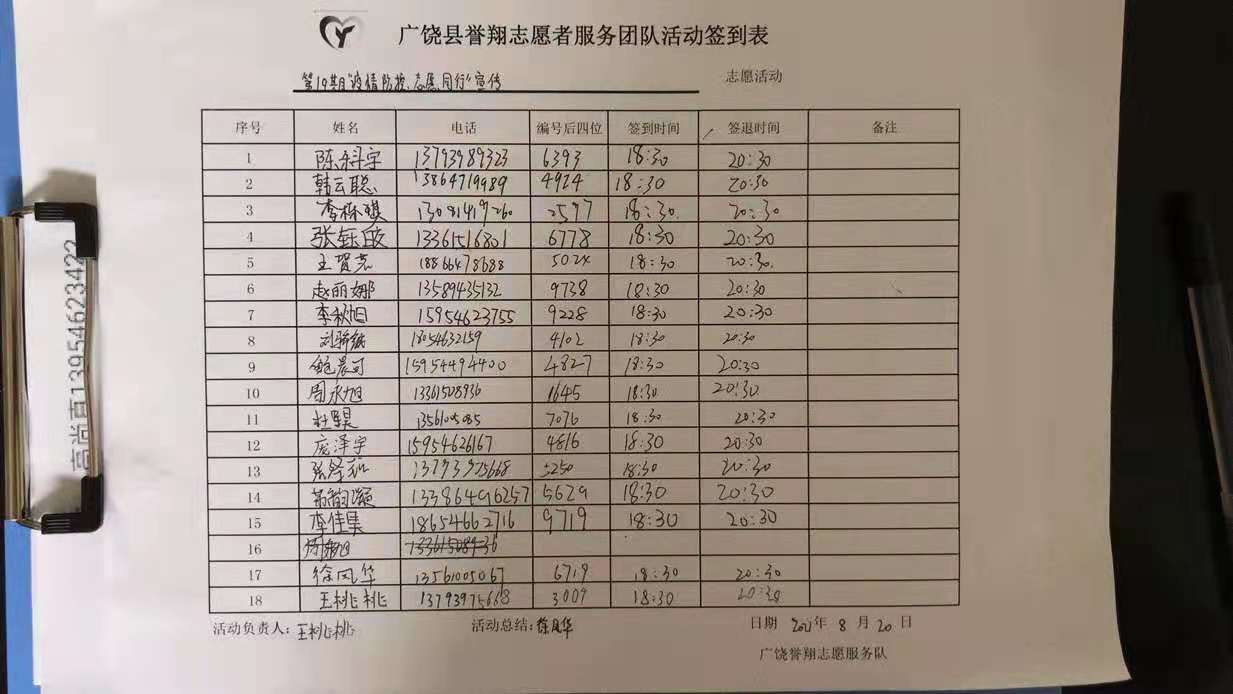 广饶县誉翔志愿者服务团队活动签到表
第19期"疫情防控、志愿同行"宣传 志愿活动
序号 姓名 电话 编号后四位 签到时间 签退时间 备注
1 陈科宇 13793989323 6393 18:30 20:30
2 韩云聪 13864719989 4924 18:30 20:30
3 李栋琪 13081419260 2597 18:30 20:30
4 张钰皎 13361516801 6778 18:30 20:30
5 王贺尧 18866478688 5024 18:30 20:30
6 赵丽娜 13589435132 9738 18:30 20:30
7 李秋旭 15954623755 9228 18:30 20:30
8 18054632159 4102 18:30 20:30
9 鲍晨可 15954494400 4827 18:30 20:30
10 周永旭 13361508936 1645 18:30 20:30
11 杜昊 1356105085 7076 18:30 20:30
12 庞泽宇 15954626167 4816 18:30 20:30
13 13793975668 5250 18:30 20:30
14 13386496257 5629 18:30 20:30
15 李佳集 18654662716 9719 18:30 20:30
16 13361508936
17 徐风华 13561005067 6719 18:30 20:30
18 王桃桃 13793975668 3009 18:30 20:30
活动负责人：王桃桃 活动总结：徐风华 日期 2021年 8 月 20 日
广饶誉翔志愿服务队
高尚真13954623422